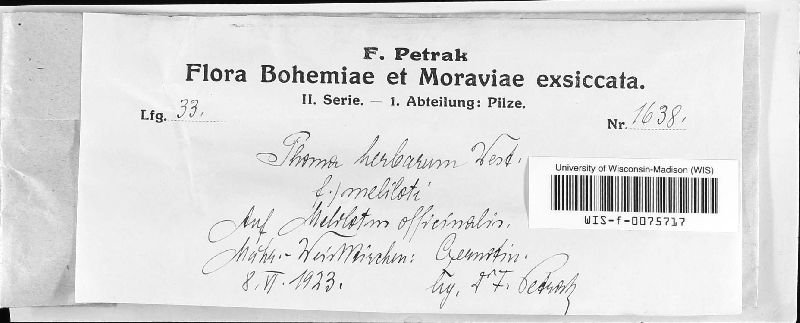 F. Petrak
Flora Bohemiae et Moraviae exsiccata.
II. Serie. — 1. Abteilung: Pilze.
Lfg. 33.
Nr. 1638.
Phoma herbarum West.
f. meliloti
Auf Melilotus officinalis.
Mähr.-Weisskirchen: Czernotin.
8. VI. 1923.
lg. Dr F. Petrak
University of Wisconsin-Madison (WIS)
WIS-f-0075717